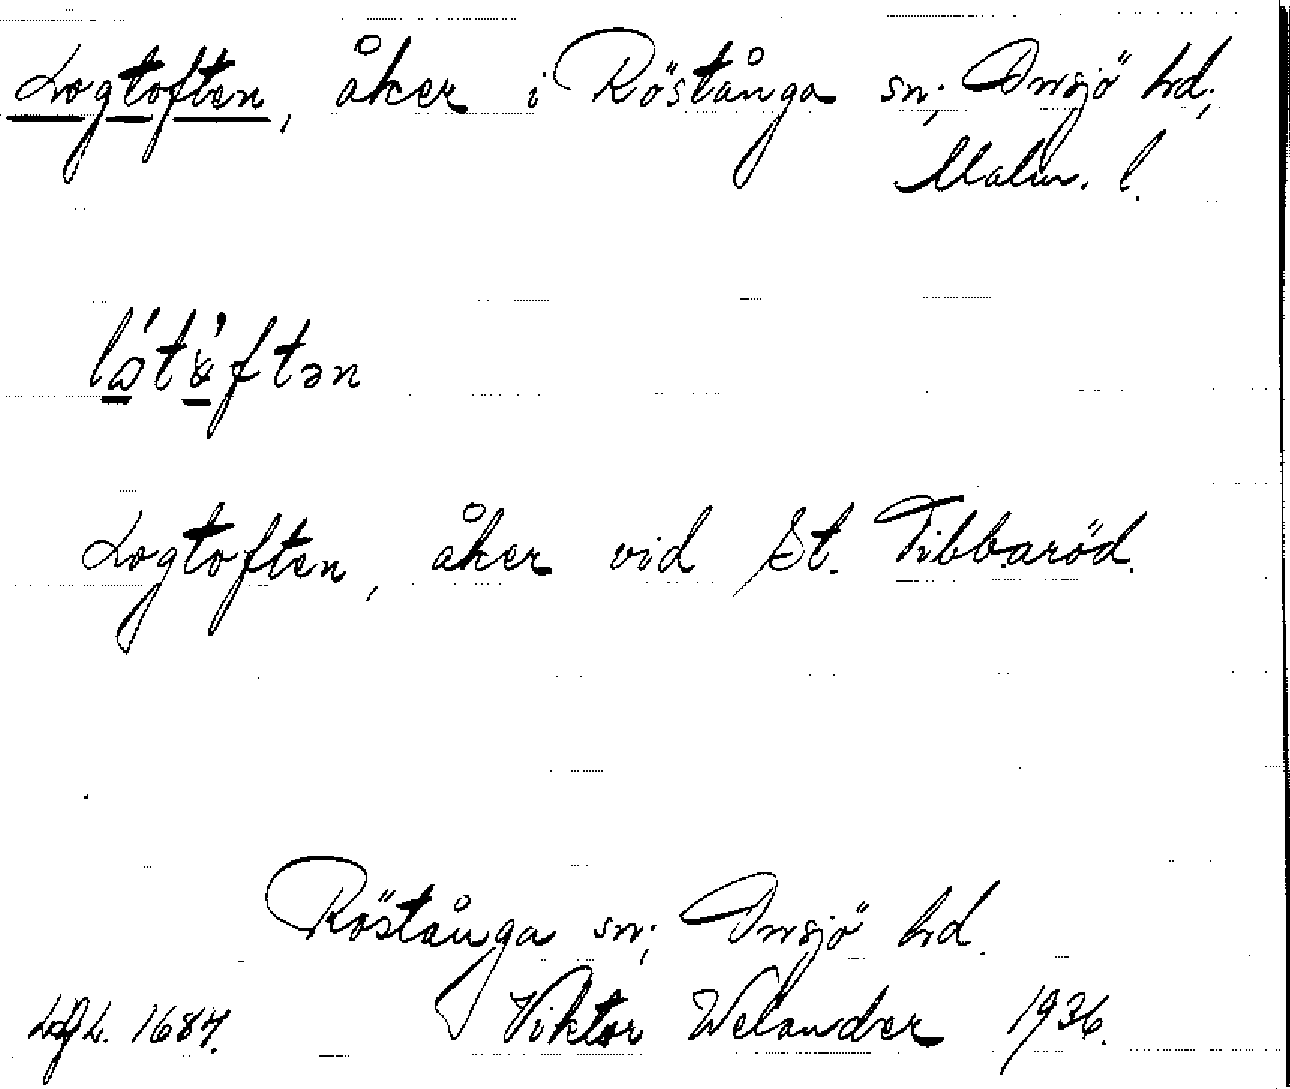 Logtoften, åker i Röstånga sn; Onsjö hd;
Malm. l.
Logtoften, åker vid St. Tibbaröd.
Röstånga sn; Onsjö hd.
Viktor Welander 1936.